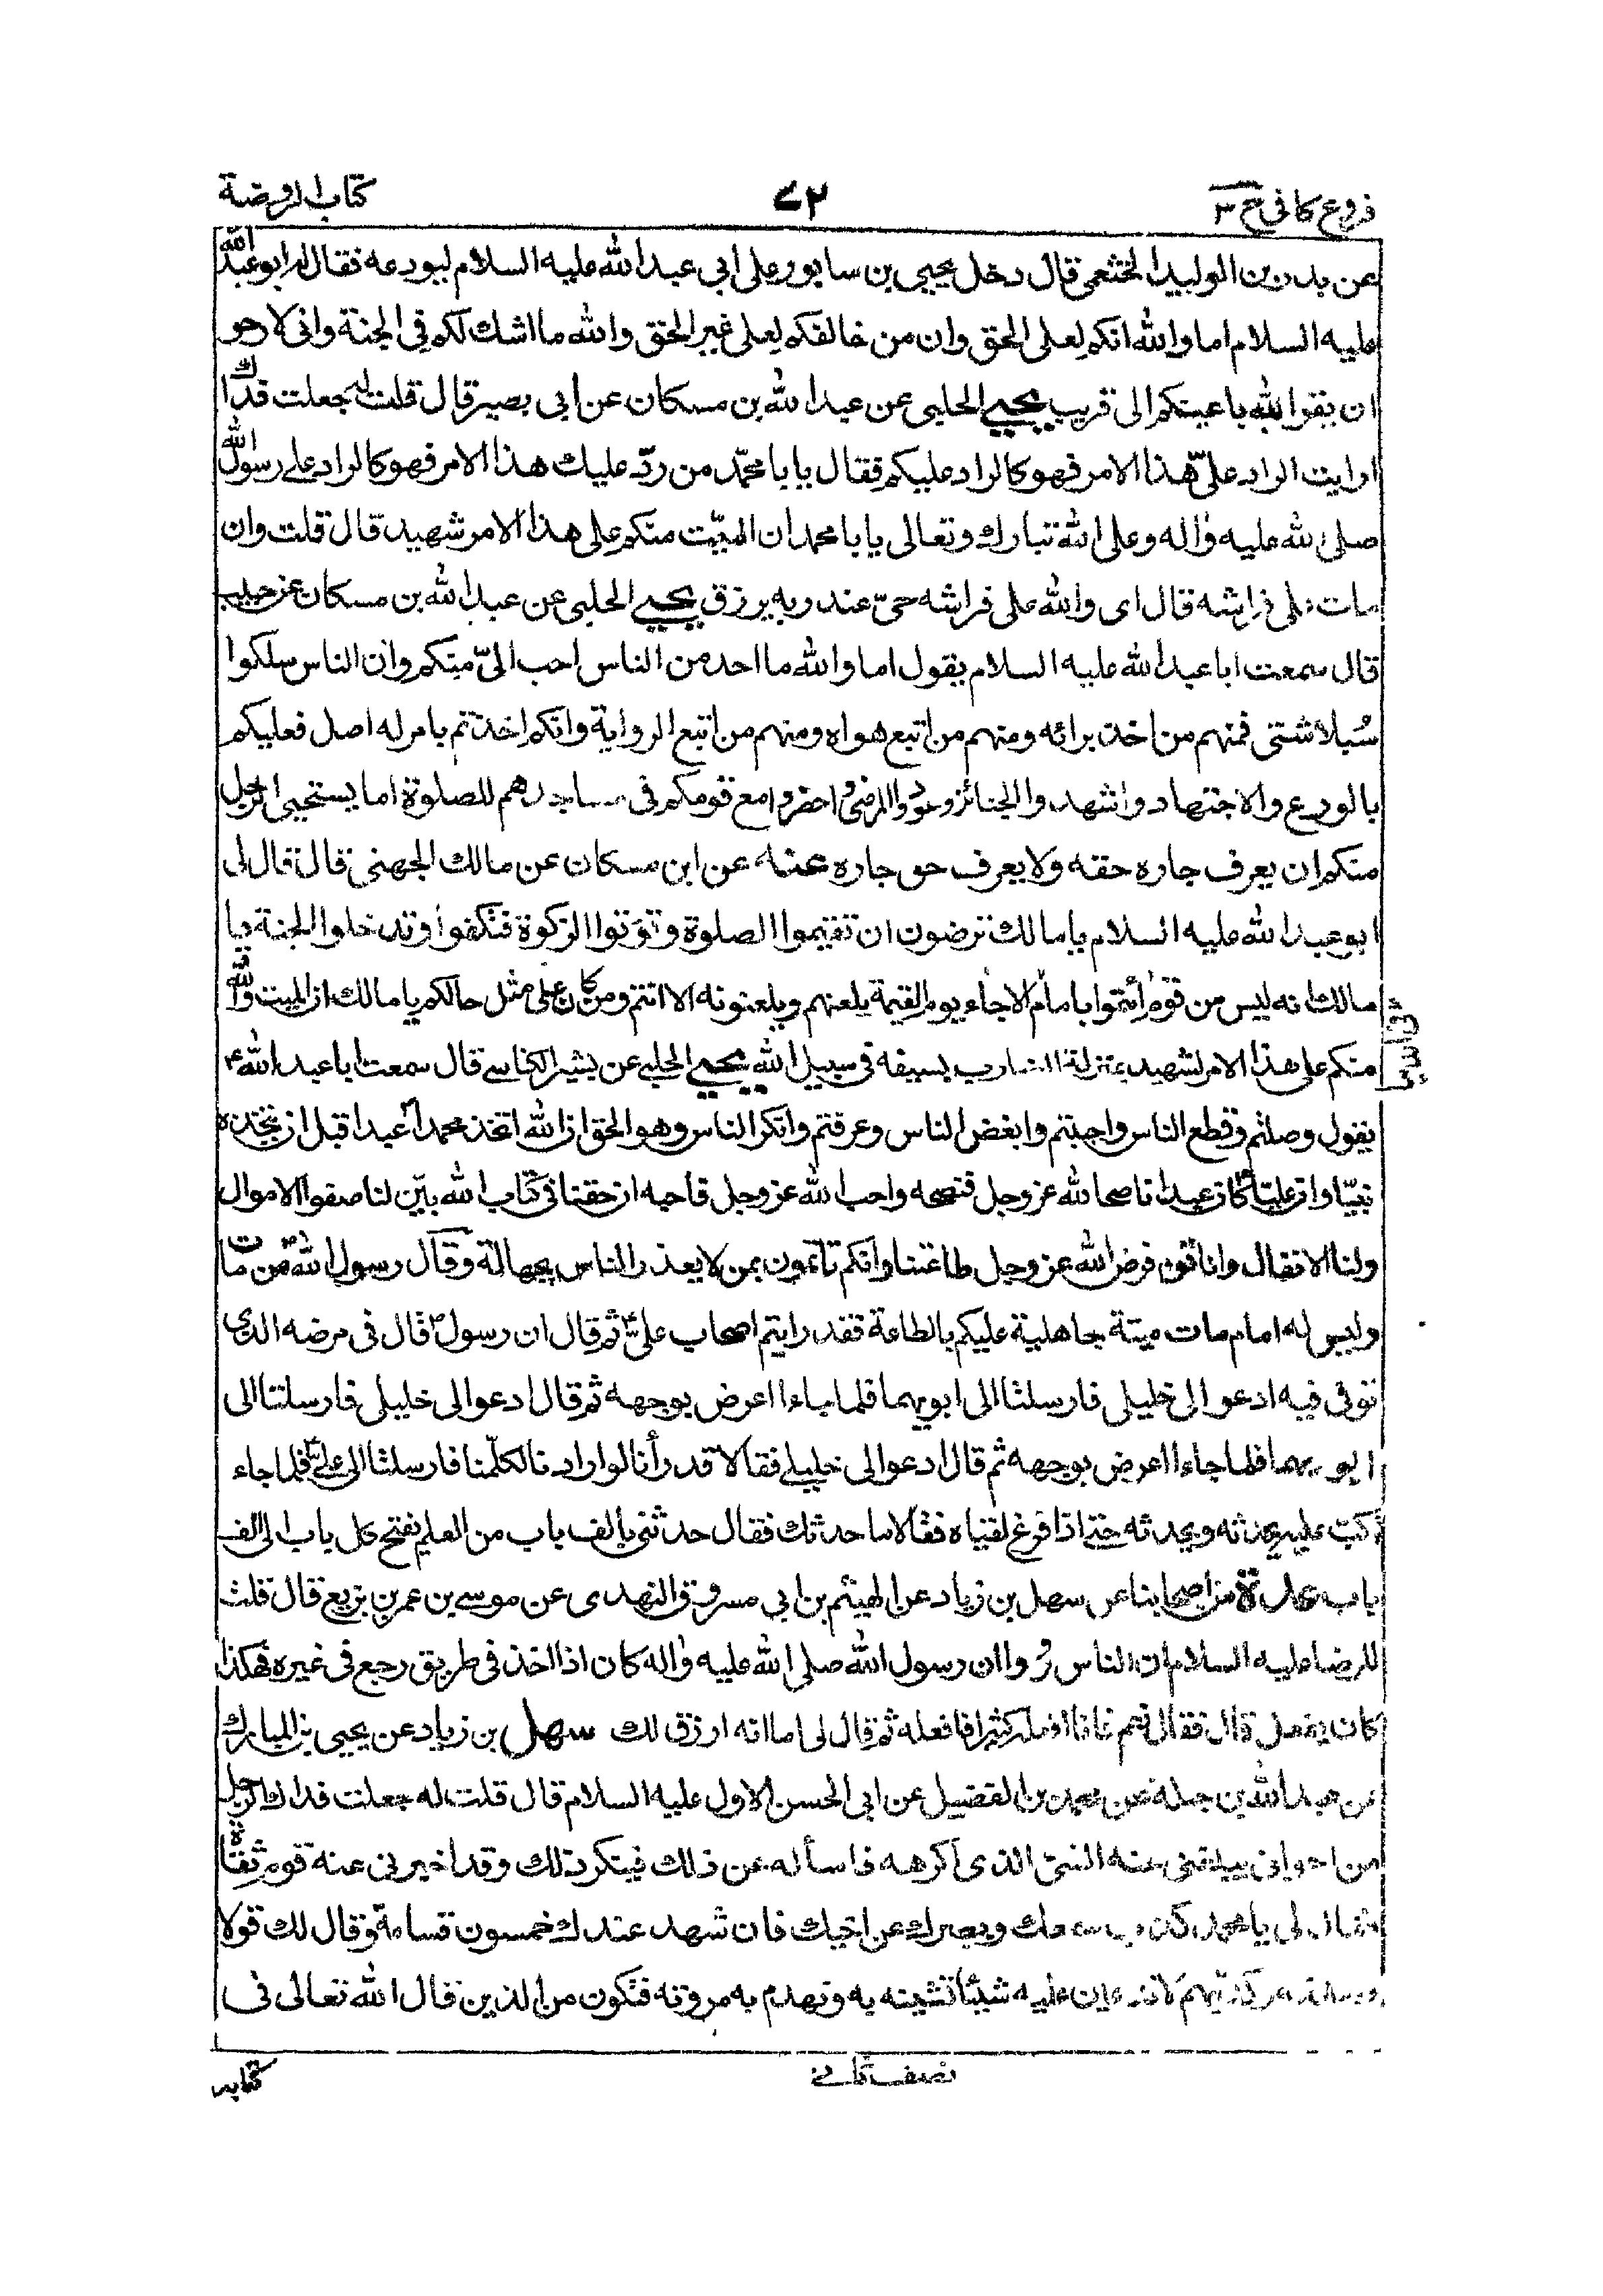 فروع كافى ج ٣
٧٢
كتاب الروضة
عن بدر بن الوليد الخثعمى قال دخل يحيى بن سابور على ابي عبد الله عليه السلام ليودعه فقال له ابو عبد الله
عليه السلام اما والله انكم لعلى الحق وان من خالفكم لعلى غير الحق والله ما اشك لكم في الجنة وانى لارجو
ان يقر الله باعينكم الى قريب يحيى الحلبى عن عبد الله بن مسكان عن ابى بصير قال قلت له جعلت فداك
ارايت الراد علىّ هذا الامر فهو كالراد عليكم فقال يا با محمّد من ردّ عليك هذا الامر فهو كالراد على رسول الله
صلى الله عليه واله وعلى الله تبارك وتعالى يا با محمد ان الميّت منكم على هذا الامر شهيد قال قلت وان
مات على فراشه قال اى والله على فراشه حىّ عند ربه يرزق يحيى الحلبى عن عبد الله بن مسكان عن حبيب
قال سمعت ابا عبد الله عليه السلام يقول اما والله ما احد من الناس احب الىّ منكم وان الناس سلكوا
سُبلا شتى فمنهم من اخذ برائه ومنهم من اتبع هواه ومنهم من اتبع الرواية وانكم اخذتم بامر له اصل فعليكم
بالورع والاجتهاد واشهدوا الجنائز وعودوا المرضى واحضروا مع قومكم فى مساجدهم للصلوة اما يستحيى الرجل
منكم ان يعرف جاره حقه ولا يعرف حق جاره عنه عن ابن مسكان عن مالك الجهنى قال قال لى
ابو عبد الله عليه السلام يا مالك ترضون ان تقيموا الصلوة وتوتوا الزكوة وتكفوا وتدخلوا الجنة يا
مالك انه ليس من قوم ائتموا بامام الا جاء يوم القيمة يلعنهم ويلعنونه الا انتم ومن كان على مثل حالكم يا مالك ان الميت والله
منكم على هذا الامر لشهيد بمنزلة الضارب بسيفه فى سبيل الله يحيى الحلبى عن بشير الكناسى قال سمعت ابا عبد الله ع
يقول وصلتم وقطع الناس واحببتم وابغض الناس وعرفتم وانكر الناس وهو الحق ان الله اتخذ محمدا عبدا قبل ان يتخذه
نبيّا وان عليّا كان عبدا ناصحا لله عز وجل فنصحه واحب الله عز وجل فاحبه ان حقنا فى كتاب الله بيّن لنا صفو الاموال
ولنا الانفال وانا قوم فرض الله عز وجل طاعتنا وانكم تاتمون بمن لا يعذر الناس بجهالته وقال رسول الله ص من مات
وليس له امام مات ميتة جاهلية عليكم بالطاعة فقد رايتم اصحاب على ع ثم قال ان رسول ص قال فى مرضه الذى
توفى فيه ادعوا لى خليلى فارسلتا الى ابويهما فلما جاءا اعرض بوجهه ثم قال ادعوا لى خليلى فارسلتا الى
ابويهما فلما جاءا اعرض بوجهه ثم قال ادعوا لى خليلى فقالا قد رأنا لو ارادنا لكلّمنا فارسلتا الى على ع فلما جاء
اكبّ عليه يحدثه ويحدثه حتى اذا فرغ لقياه فقالا ما حدثك فقال حدثنى بالف باب من العلم يفتح كل باب الى الف
باب عدة من اصحابنا عن سهل بن زياد عن الهيثم بن ابي مسروق النهدى عن موسى بن عمر بن بزيع قال قلت
للرضا عليه السلام ان الناس رووا ان رسول الله صلى الله عليه واله كان اذا اخذ فى طريق رجع فى غيره فهكذا
كان يفعل قال فقال نعم فانا افعله كثيرا فافعله ثم قال لى اما انه ارزق لك سهل بن زياد عن يحيى بن المبارك
عن عبد الله بن جبلة عن محمد بن الفضيل عن ابى الحسن الاول عليه السلام قال قلت له جعلت فداك الرجل
من اخوانى يبلغنى عنه الشئ الذى اكرهه فاساله عن ذلك فينكر ذلك وقد اخبرنى عنه قوم ثقات
فقال لى يا محمد كذب سمعك وبصرك عن اخيك فان شهد عندك خمسون قسامة وقال لك قولا
فصدقه وكذبهم لا تذيعن عليه شيئا تشينه به وتهدم به مروته فتكون من الذين قال الله تعالى فى
كتابه